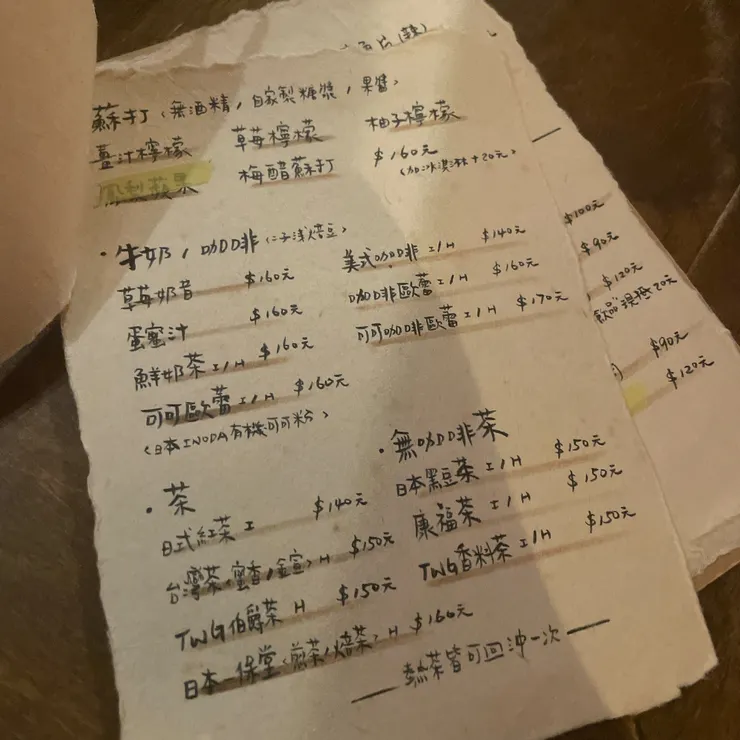 蘇打(無酒精/自家製糖漿/果醬)
薑汁檸檬 草莓檸檬 柚子檸檬
鳳梨蘋果 梅醋蘇打 $160元
(加冰淇淋+20元)
·牛奶/咖啡(二子浅焙豆)
草莓奶昔 $160元
蛋蜜汁 $160元
鮮奶茶 I/H $160元
可可歐蕾 I/H $160元
(日本INODA有機可可粉)
美式咖啡 I/H $140元
咖啡歐蕾 I/H $160元
可可咖啡歐蕾 I/H $170元
·茶
日式紅茶 I $140元
台灣茶(蜜香/金萱) H $150元
TWG伯爵茶 H $150元
日本一保堂(煎茶/焙茶) H $160元
·無咖啡茶
日本黑豆茶 I/H $150元
康福茶 I/H $150元
TWG香料茶 I/H $150元
—熱茶皆可回沖一次—
$100元
$90元
$120元
飲品現抵20元
$90元
$120元